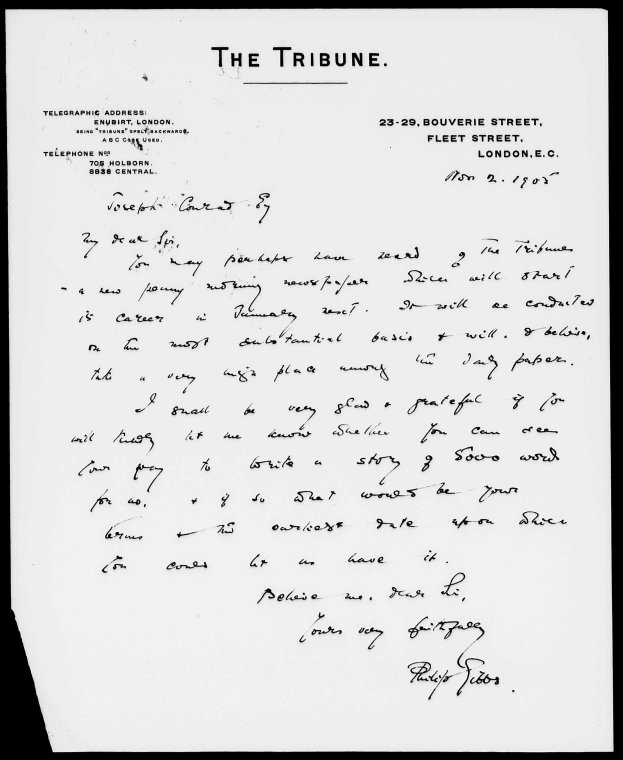 THE TRIBUNE.
TELEGRAPHIC ADDRESS:
ENUBIRT, LONDON.
BEING "TRIBUNE" SPELT BACKWARDS.
A B C CODE USED.
TELEPHONE Nos
705 HOLBORN.
8838 CENTRAL.
23-29, BOUVERIE STREET,
FLEET STREET,
LONDON, E.C.
Nov 2. 1905
Joseph Conrad Esq
My dear Sir,
You may perhaps have heard of The Tribune
- a new penny morning newspaper which will start
its career in January next. It will be conducted
on the most substantial basis & will, I believe,
take a very high place among the daily papers.
I shall be very glad & grateful if you
will kindly let me know whether you can see
your way to write a story of 5000 words
for us, & if so what would be your
terms & the earliest date upon which
you could let us have it.
Believe me, dear Sir,
Yours very faithfully
Philip Gibbs.